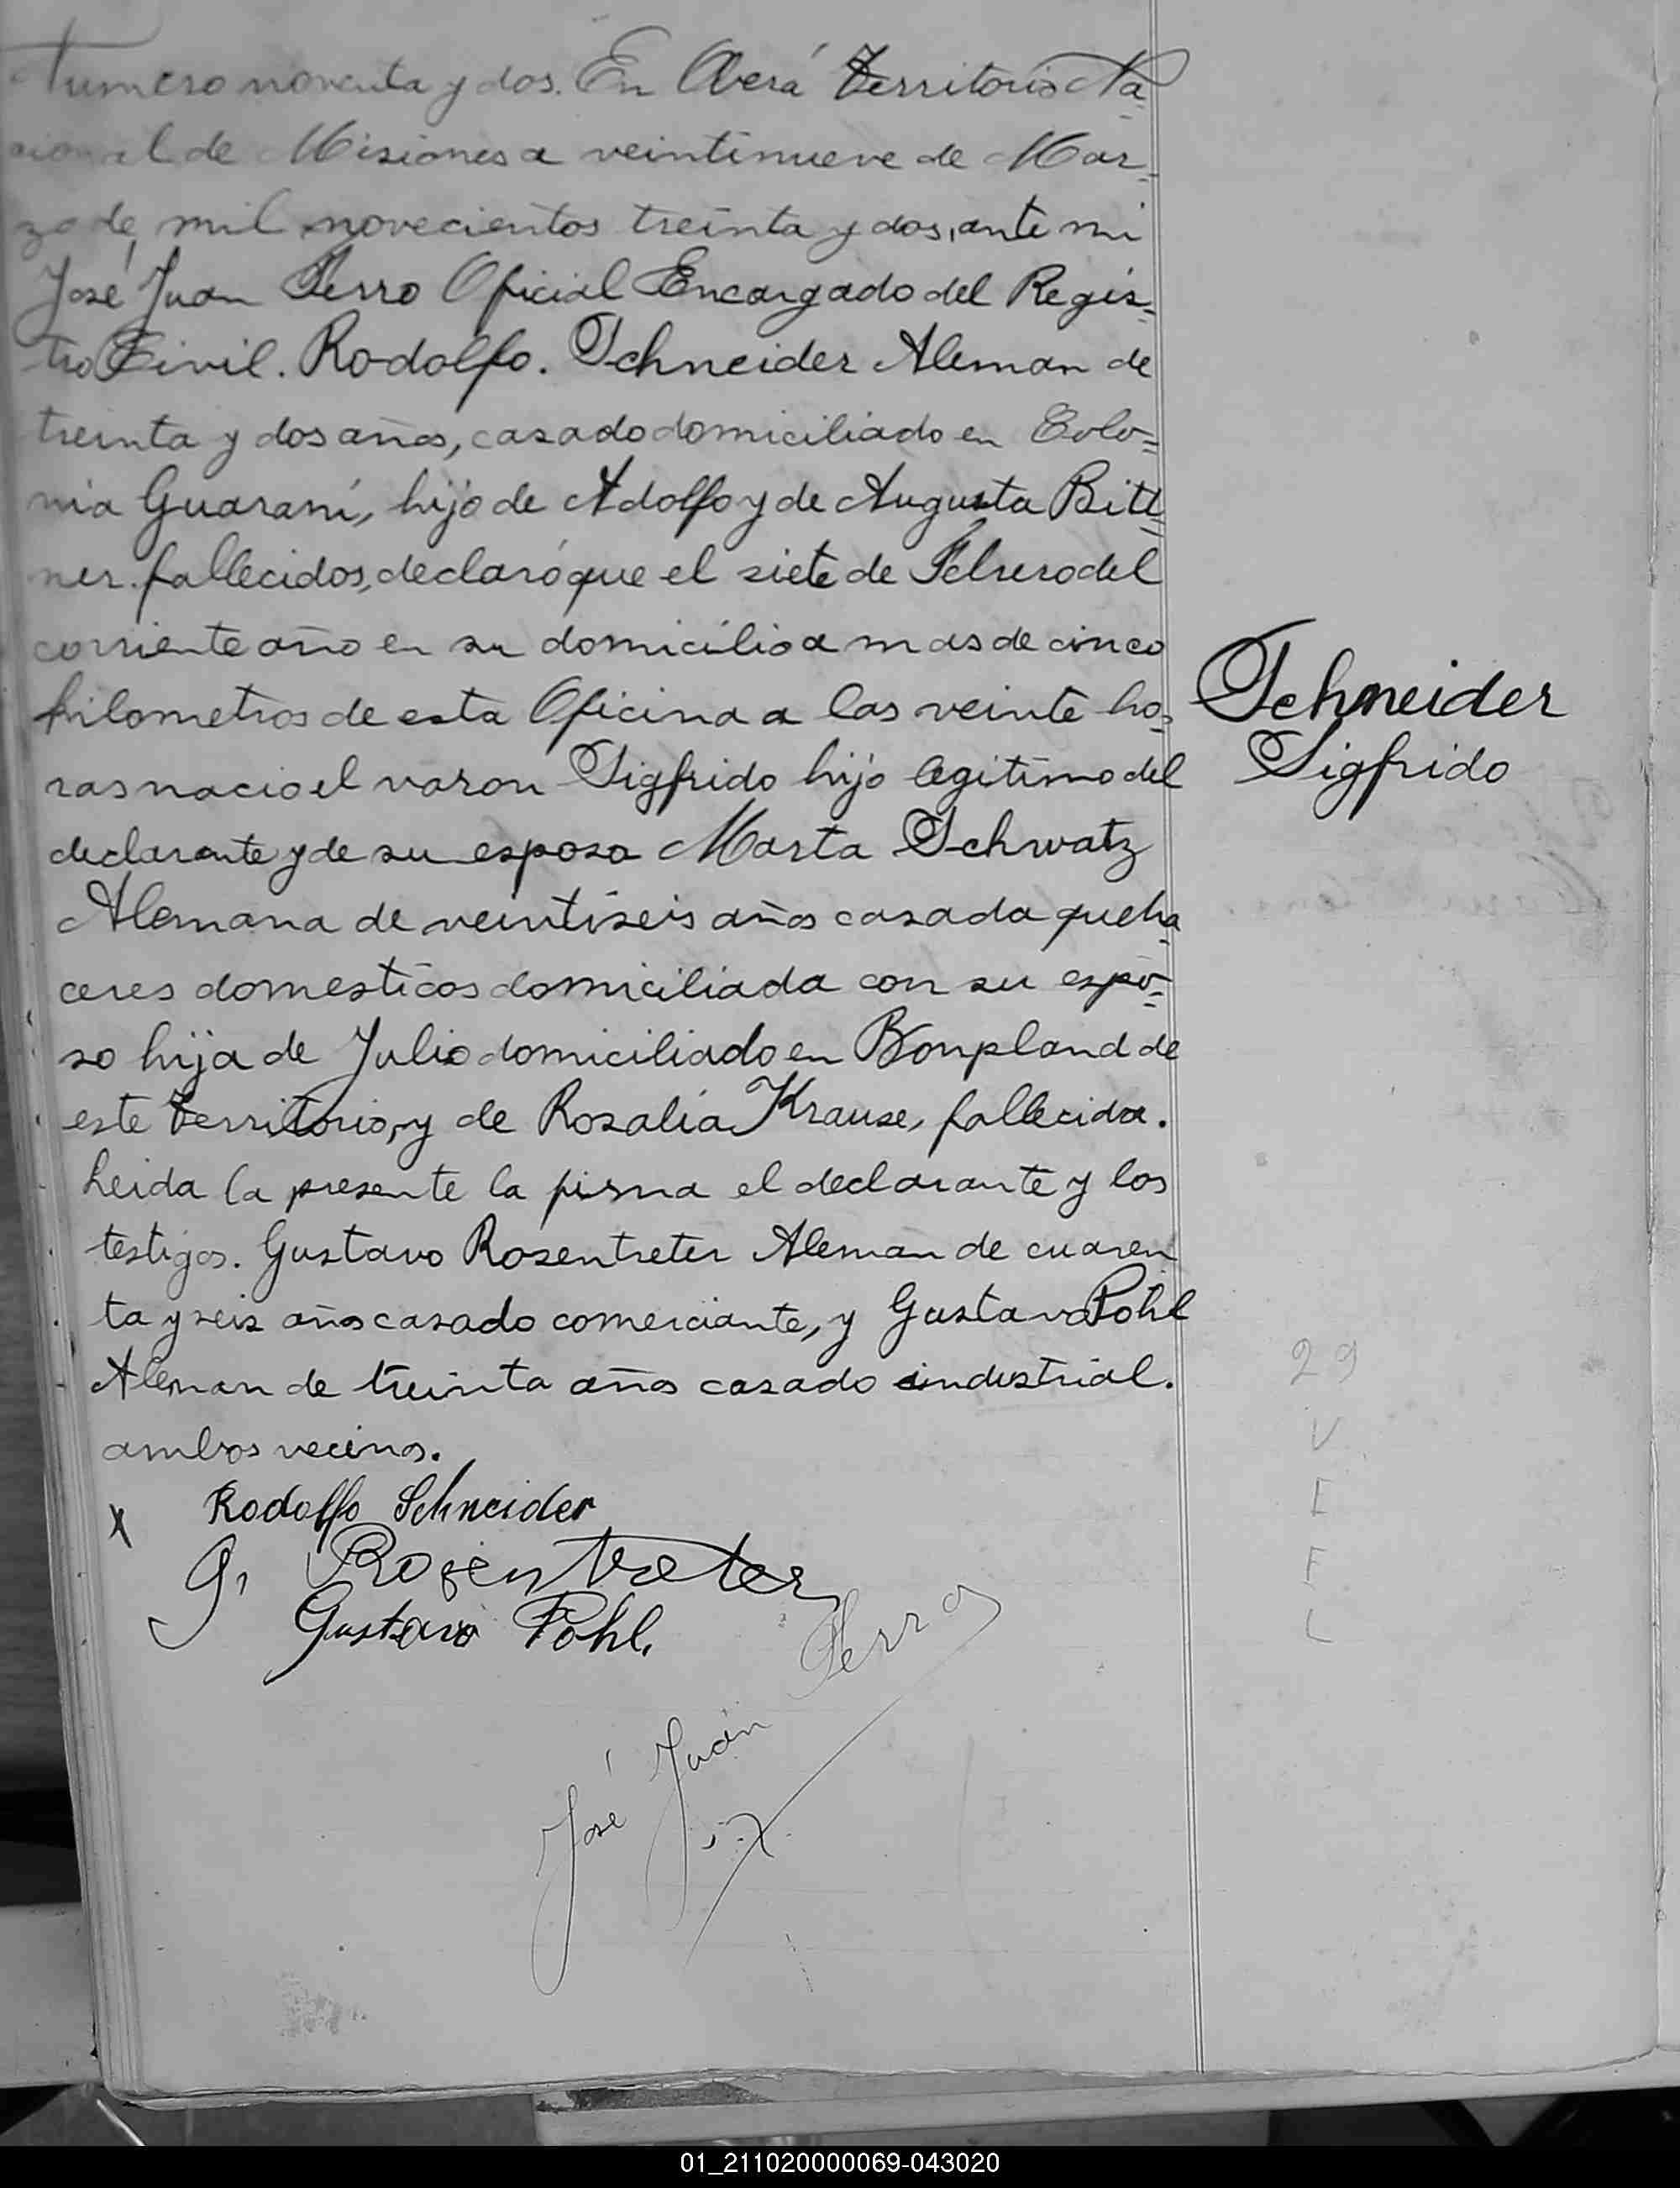 Numero noventa y dos. En Oberá Territorio Na=
cional de Misiones a veintinueve de Mar=
zo de mil novecientos treinta y dos, ante mi
José Juan Ferro Oficial Encargado del Regis=
tro Civil. Rodolfo. Schneider Aleman de
treinta y dos años, casado domiciliado en Colo=
nia Guaraní, hijo de Adolfo y de Augusta Bitt=
ner. fallecidos, declaró que el siete de Febrero del
corriente año en su domicilio a mas de cinco
kilometros de esta Oficina a las veinte ho=
ras nacio el varon Sigfrido hijo legitimo del
declarante y de su esposa Marta Schwatz
Alemana de veintiseis años casada queha=
ceres domesticos domiciliada con su espo=
so hija de Julio domiciliado en Bonpland de
este territorio, y de Rosalia Krause, fallecida.
Leida la presente la firma el declarante y los
testigos. Gustavo Rosentreter Aleman de cuaren
ta y seis años casado comerciante, y Gustavo Pohl
Aleman de treinta años casado industrial.
ambos vecinos.
Schneider
Sigfrido
29
V
E
F
L
X Rodolfo Schneider
G. Rosentreter
Gustavo Pohl.
José Juan Ferro
01_211020000069-043020